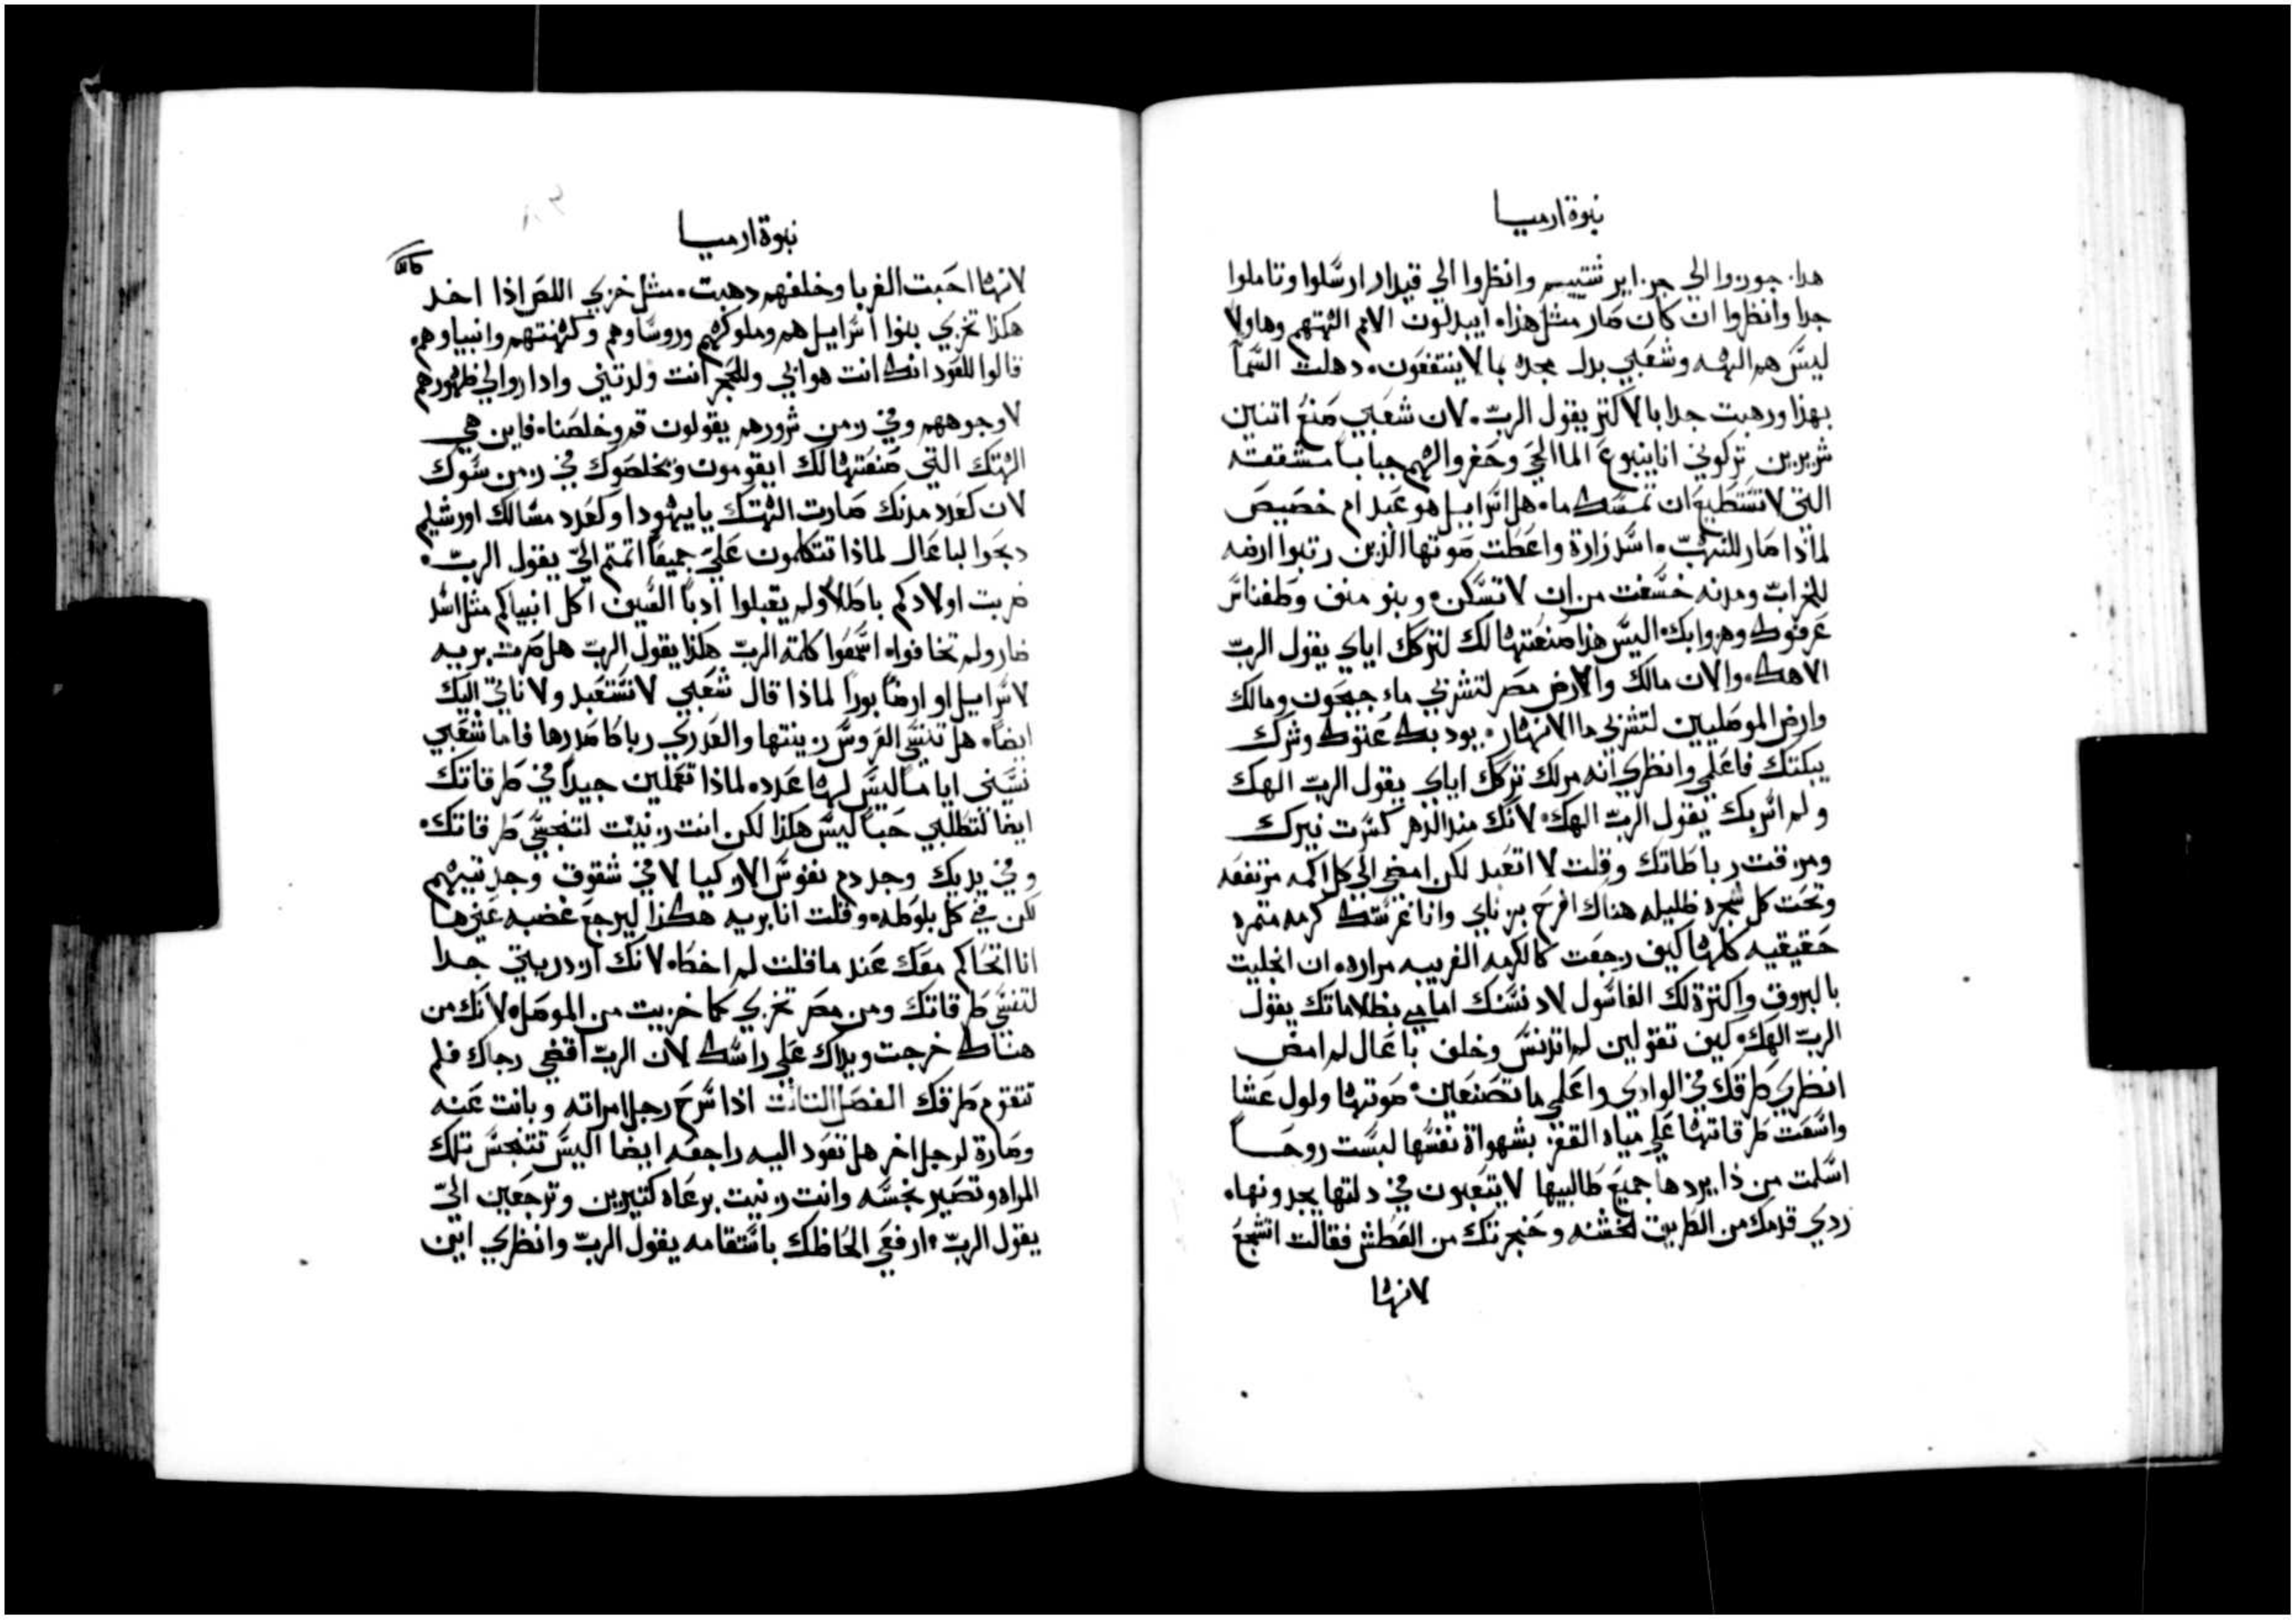 نبوة ارميا
هدا. جوزوا الي جزاير شتييم وانظروا الي قيدار ارسلوا وتاملوا
جدا وانظروا ان كان صار مثل هذا. ايبدلون الامم الهتهم وهاولا
ليس هم الهه وشعبي بدل مجده بما لا ينتفعون. دهلت السما
بهذا ورهبت جدا بالاكتر يقول الرب. لان شعبي صنع اتنين
شريرين تركوني انا ينبوع الما الحي وحفروا لهم جبابا مشققه
التي لا تستطيع ان تمسك ما. هل اسراييل هو عبد ام خصيص
لماذا صار للنهب. اسد زارة واعطت صوتها الذين رتبوا ارضه
للخراب ومدنه خسفت من ان لا تسكن. وبنو منف وطفناس
عرفوك وهزوا بك. اليس هذا صنعتها لك لتركك اياي يقول الرب
الاهك. والان مالك والارض مصر لتشربي ماء جيحون ومالك
وارض الموصليين لتشربي ما الانهار. يودبك عنوك وشرك
يبكتك فاعلمي وانظري انه مر لك تركك اياي يقول الرب الهك
ولم اسر بك يقول الرب الهك. لانك منذ الدهر كسرت نيرك
ومزقت رباطاتك وقلت لا اتعبد لكن امضي الي كل اكمه مرتفعه
وتحت كل شجره ظليله هناك افرح بزناي وانا غرستك كرمه متمره
حقيقيه كلها كيف رجعت كالكرمه الغريبه مراره. ان اغليت
بالبروق واكترة لك الغاسول لادنستك امامي بظلاماتك يقول
الرب الهك. كيف تقولين لم اتدنس وخلف باعال لم امض
انظري طرقك في الوادي واعلمي ما تصنعين. صوتها ولول عشا
واسعت طرقاتها علي مياه القفر بشهواة نفسها لبست روحا
اسلمت من ذا يردها جميع طالبيها لا يتعبون في دلتها يجدونها.
ردي قدمك من الطريق الخشنه وحنجرتك من العطش فقالت اتشجع
لانها
نبوة ارميا
لانها احبت الغربا وخلفهم دهبت. مثل خزي اللص اذا اخد
هكذا تخزي بنوا اسراييل هم وملوكهم وروساوهم وكهنتهم وانبياوهم.
قالوا للعود انك انت هو ابي وللحجر انت ولدتني واداروا لي ظهورهم
لا وجوههم وفي زمن شرورهم يقولون قم وخلصنا. فاين هي
الهتك التي صنعتها لك ايقومون ويخلصوك في زمن سوك
لان كعدد مدنك صارت الهتك يا يهودا وكعدد مسالك اورشليم
دبحوا لباعال لماذا تتكلمون علي جميعا اتمتم الي يقول الرب.
ضربت اولادكم باطلا ولم يقبلوا ادبا السيف اكل انبياكم مثل اسد
ضار ولم تخافوا. اسمعوا كلمة الرب هكذا يقول الرب هل صرت بريه
لاسراييل او ارضا بورا لماذا قال شعبي لا نستعبد ولا ناتي اليك
ايضا. هل تنسي العروس زينتها والعدري رباط صدرها فاما شعبي
نسيني اياما ليس لها عدد. لماذا تعملين جيدا في طرقاتك
ايضا لتطلبي حبا ليس هكذا لكن انت زنيت لتنجسي طرقاتك.
وفي يديك وجد دم نفوس الازكيا لا في شقوق وجدتيهم
لكن في كل بلوطه. وقلت انا بريه هكذا ليرجع غضبه عني ها
انا اتحاكم معك عند ما قلت لم اخط. لانك ازدريتي جدا
لتنسي طرقاتك ومن مصر تخزي كما خزيت من الموصل. لانك من
هناك خرجت ويداك علي راسك لان الرب اقضي رجاك فلم
تتقوم طرقك الفصل التالت اذا سرح رجل امراته وبانت عنه
وصارة لرجل اخر هل تعود اليه راجعه ايضا اليس تتنجس تلك
المراه وتصير نجسه وانت زنيت برعاه كتيرين وترجعين الي
يقول الرب. ارفعي الحاظك باستقامه يقول الرب وانظري اين